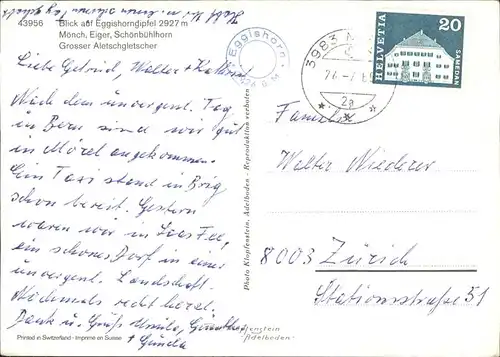 43956 Blick auf Eggishorngipfel 2927 m
Mönch, Eiger, Schönbühlhorn
Grosser Aletschgletscher
Liebe Gertrud, Walter + Kathrin
Nach dem unvergessl. Tag
in Bern sind wir gut
in Mörel angekommen.
Ein Taxi stand in Brig
schon bereit. Gestern
waren wir in Saas Fee,
ein schönes Dorf in einer
unvergessl. Landschaft.
Nochmals recht herzl.
Dank u. Grüße Ursula, Günther
+ Gunda
Printed in Switzerland - Imprimé en Suisse
Photo Klopfenstein, Adelboden - Reproduktion verboten
Klopfenstein
Adelboden
Eggishorn
3983
2a
HELVETIA
20
SAMEDAN
Familie
Walter Wiederer
8003 Zürich
Stationsstraße 51